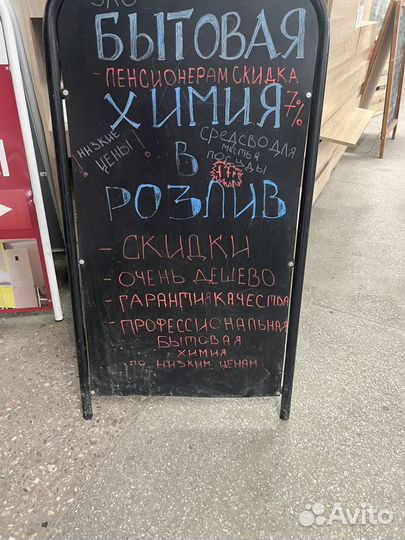 ЭКО
БЫТОВАЯ
- ПЕНСИОНЕРАМ СКИДКА
ХИМИЯ 7%
НИЗКИЕ ЦЕНЫ!
СРЕДСВО ДЛЯ
МЫТЬЯ
ПОСУДЫ
В
РОЗЛИВ
- СКИДКИ
- ОЧЕНЬ ДЕШЕВО
- ГАРАНТИЯ КАЧЕСТВА
- ПРОФЕССИОНАЛЬНАЯ
БЫТОВАЯ
ХИМИЯ
ПО НИЗКИМ ЦЕНАМ
Avito